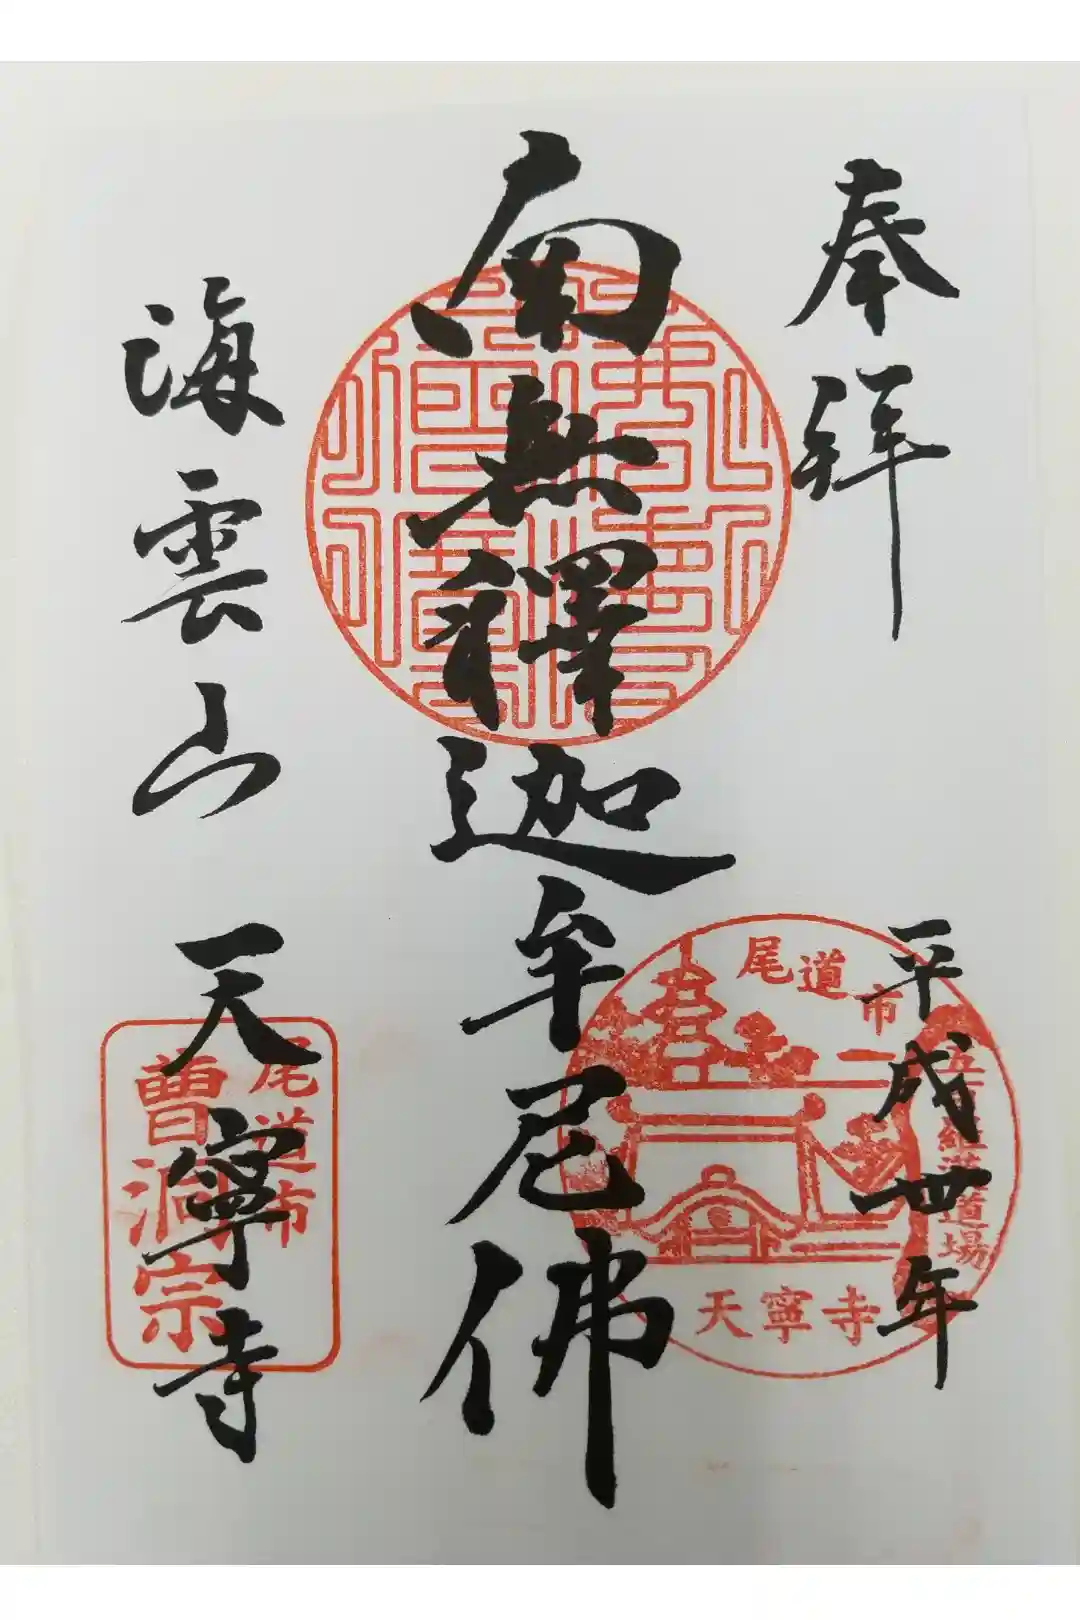 奉拜
平成卅年
南無釋迦牟尼佛
海雲山
天寧寺
尾道市
天寧寺
尾道市
曹洞宗